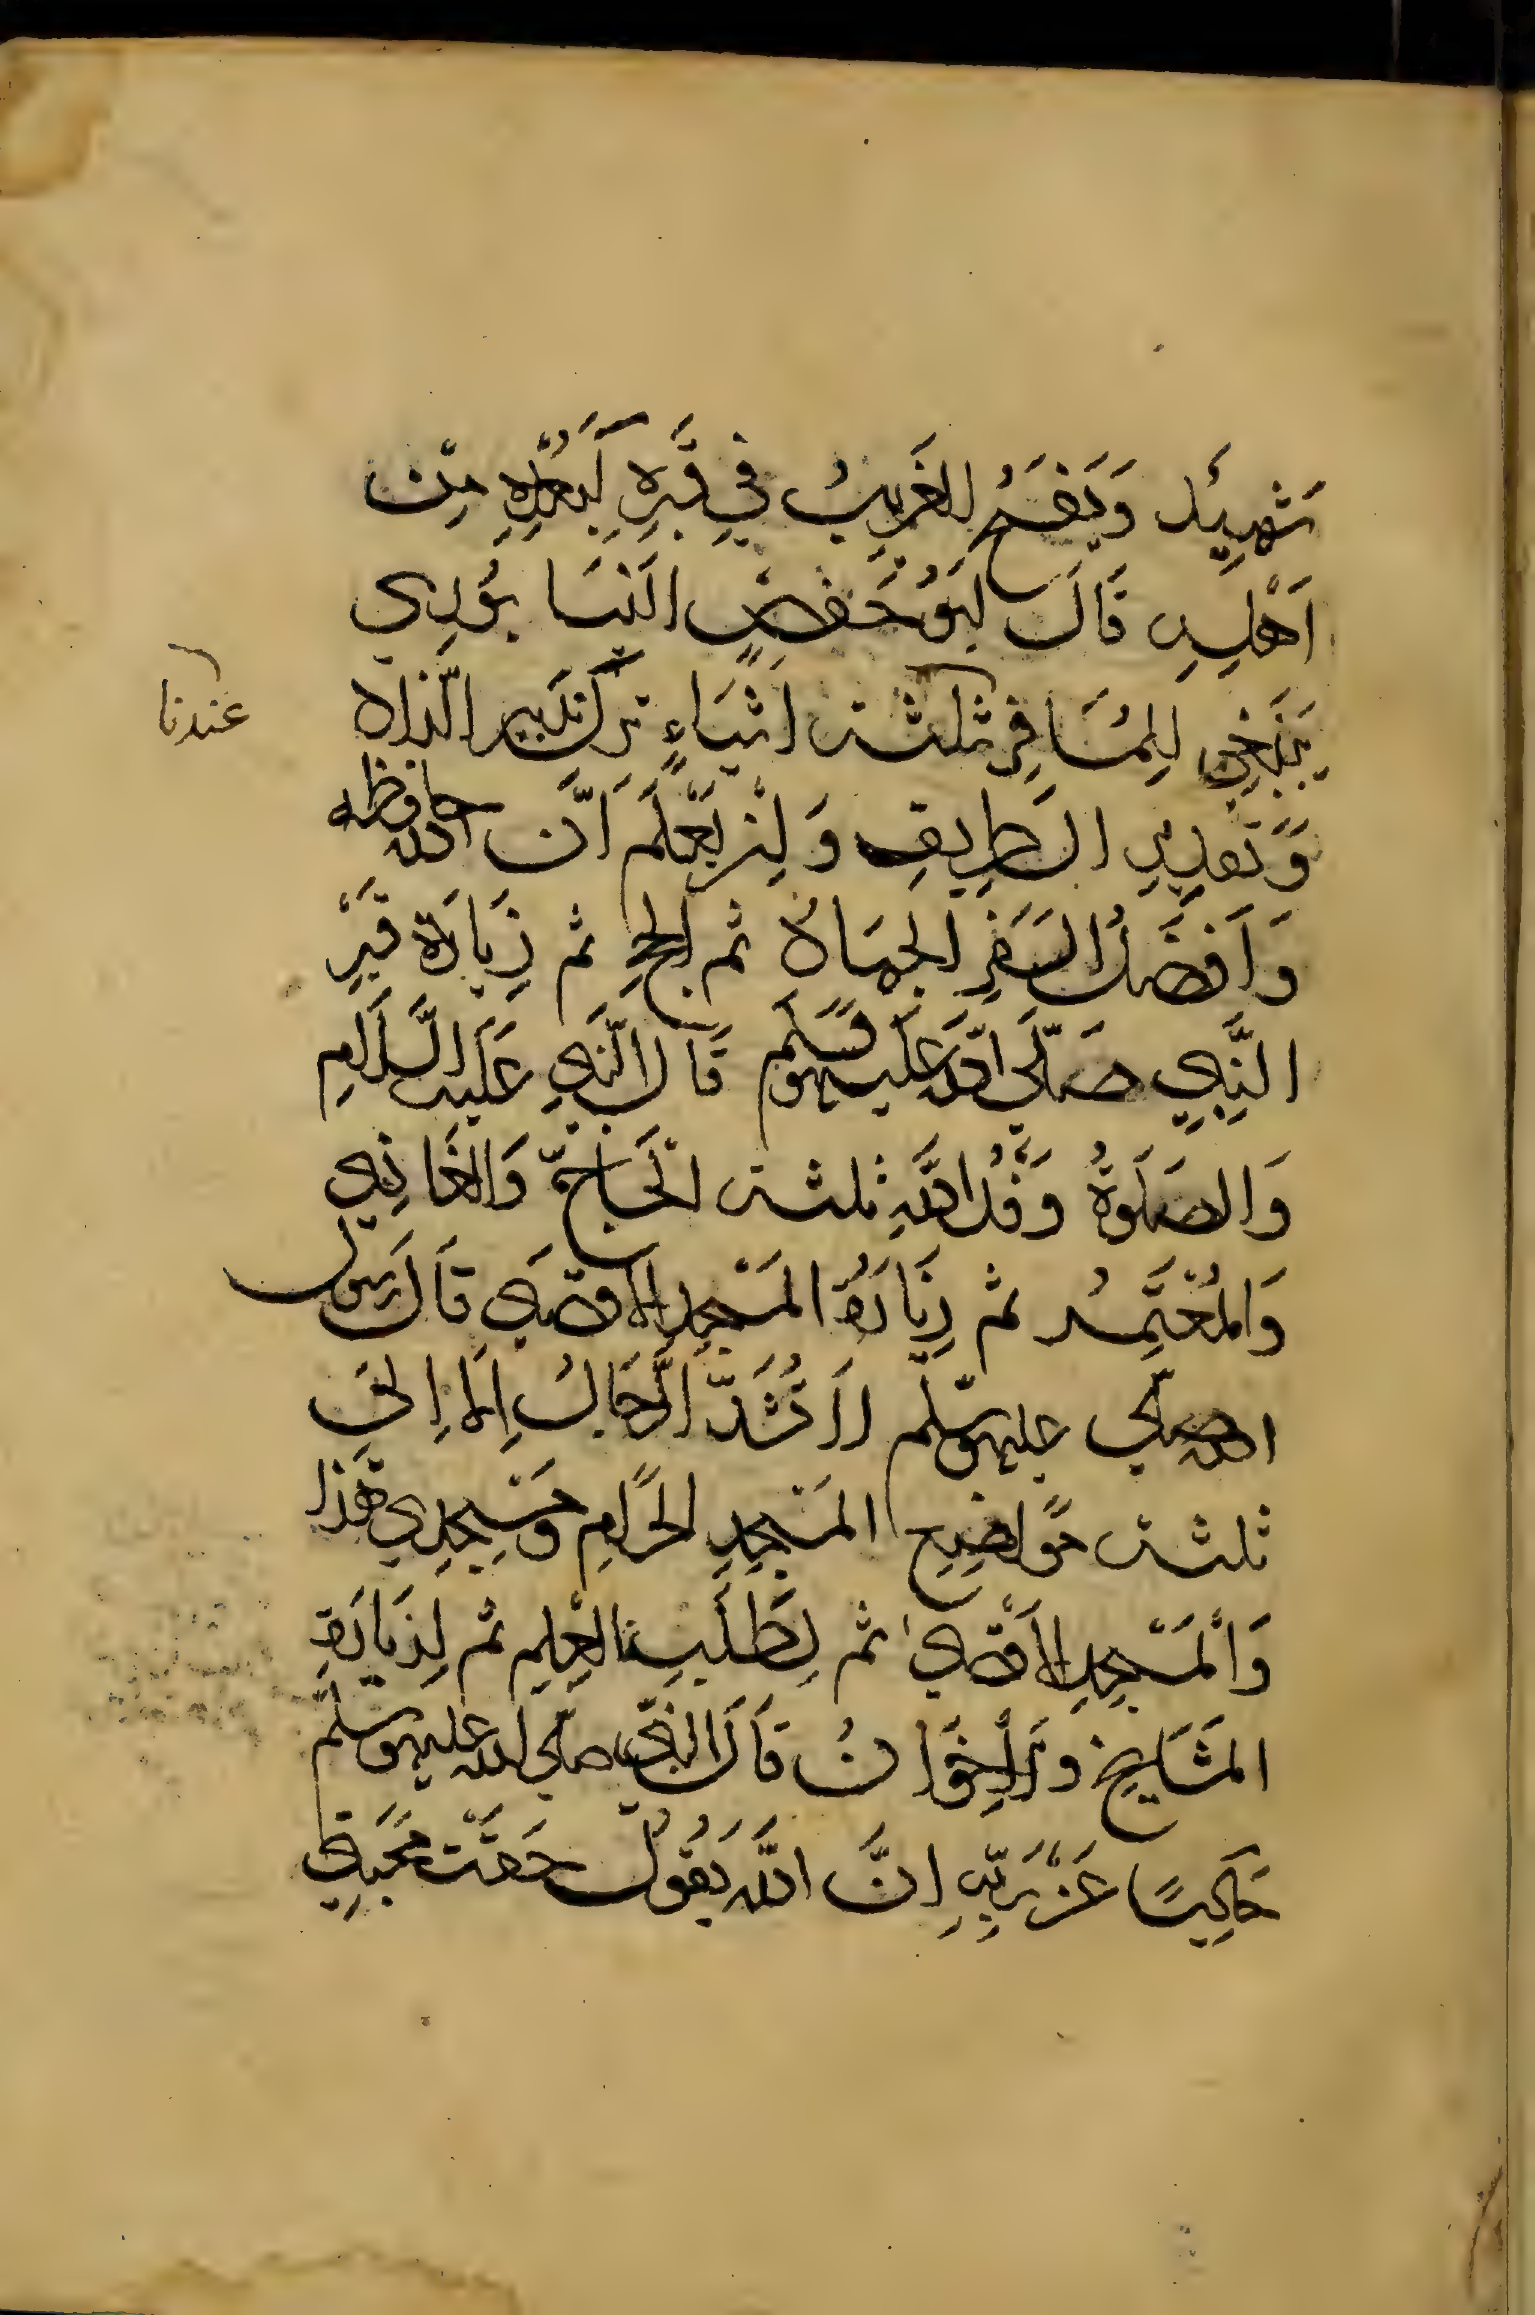 شَهِيْد وَيُفْسَحُ لِلغَرِيبُ فِي قَبْرِهِ كَبُعْدِهِ مِنْ
اَهْلِهِ قَالَ اَبُوْ حَفْصٍ النَيسَابُورِي
يَنْبَغِي لِلمُسَافِرِ ثلثة اَشْيَاءٍ ترك تدبير الزاد
وَتَقْدِيرِ الطَرِيقِ وَاَنْ يَعْلَمَ اَنَّ الله حافظه
عندنا
وَاَفْضَلُ السَفَرِ الجِهَادُ ثم الحَجِ ثم زِيَارَة قَبْرِ
النَّبِي صَلَّى الله عَلَيه وَسَلم قَالَ النَّبِي عَلَيه السَّلَامِ
وَالصَلَوةُ وَفْدُ اللَّهِ ثلثة الحَاجّ وَالغَازِي
وَالمُعْتَمِرُ ثم زِيَارَةُ المَسْجِدِ الاقصَى قَالَ رَسول
الله صلى عليه وسلم لَا تُشَدّ الرِّحَالُ اِلا اِلىَ
ثلثة مَوَاضِعِ المَسْجِدِ الحَرَامِ وَمَسْجِدِي هَذا
وَالْمَسْجِدِ الاَقْصَى ثم لِطَلَبِ العِلِمِ ثم لِزيَارَةِ
المَشَايِخ وَالْاِخوَانُ قَالَ النَّبِي صَلّى الله عليه وسلم
حَاكِيًا عَنْ رَبِّهِ اِنَّ اللَّه يَقُوْلُ حَقَّتْ مَحَبَتِي